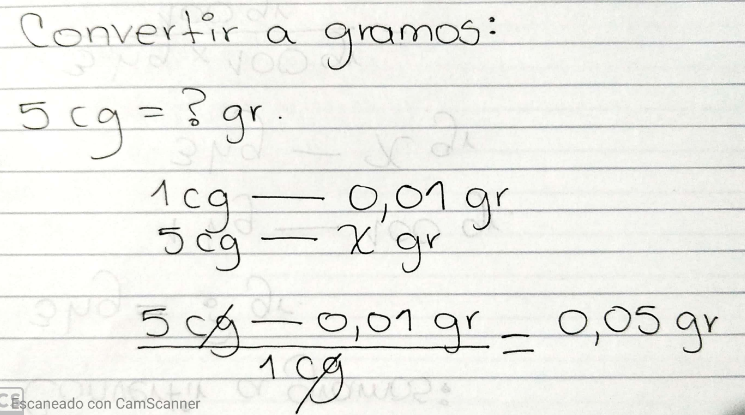 Convertir a gramos:
5 cg = ? gr.
1 cg — 0,01 gr
5 cg — x gr
5 cg — 0,01 gr = 0,05 gr
1 cg
CS Escaneado con CamScanner